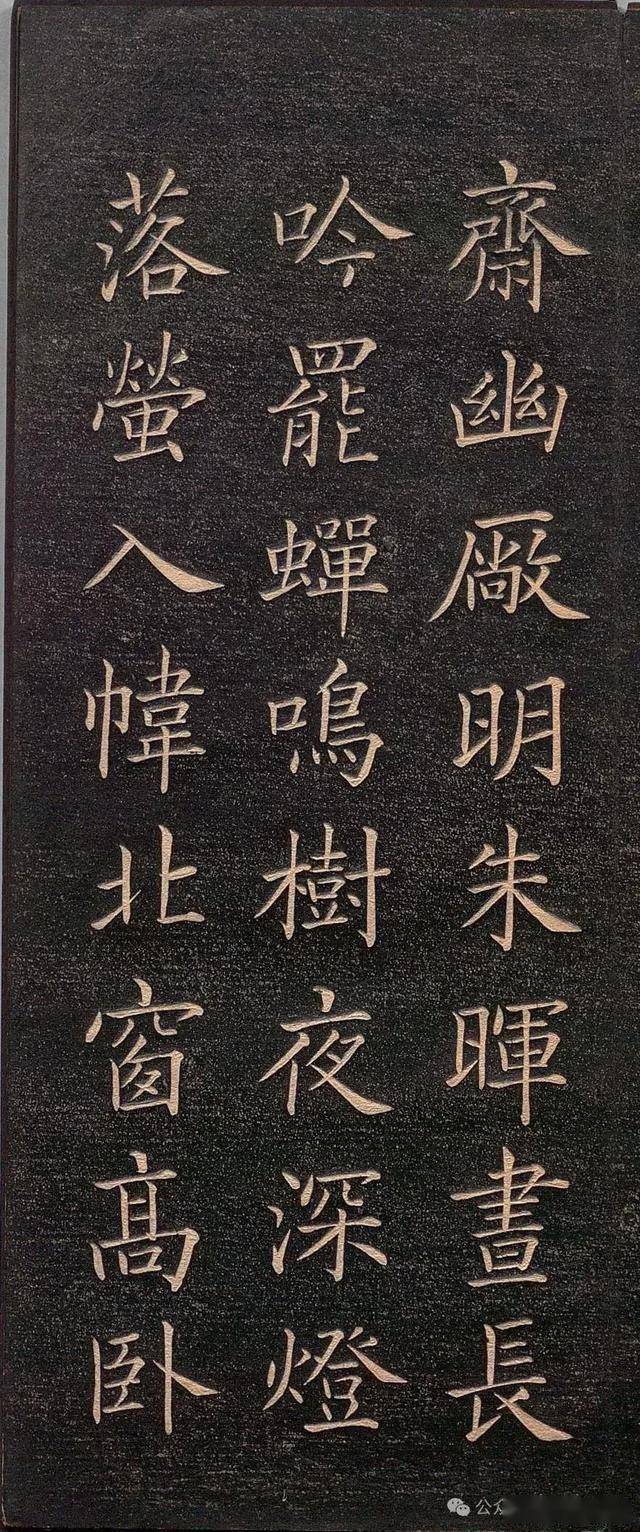 齋幽厰明朱暉晝長
吟罷蟬鳴樹夜深燈
落螢入幃北窗高卧
公众